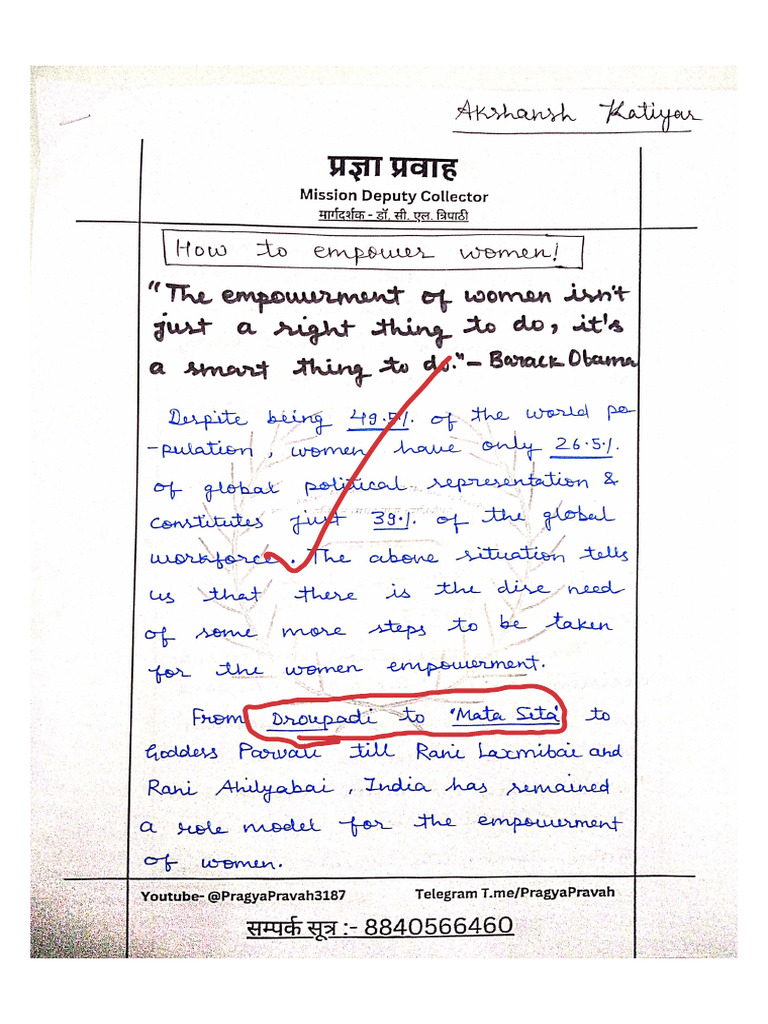 Akshansh Katiyar
प्रज्ञा प्रवाह
Mission Deputy Collector
मार्गदर्शक - डॉ. सी. एल. त्रिपाठी
How to empower women!
"The empowerment of women isn't
just a right thing to do, it's
a smart thing to do." - Barack Obama
Despite being 49.5% of the world po-
-pulation, women have only 26.5%
of global political representation &
constitutes just 39% of the global
workforce. The above situation tells
us that there is the dire need
of some more steps to be taken
for the women empowerment.
From Droupadi to 'Mata Sita' to
Goddess Parvati till Rani Laxmibai and
Rani Ahilyabai, India has remained
a role model for the empowerment
of women.
Youtube- @PragyaPravah3187 Telegram T.me/PragyaPravah
सम्पर्क सूत्र :- 8840566460